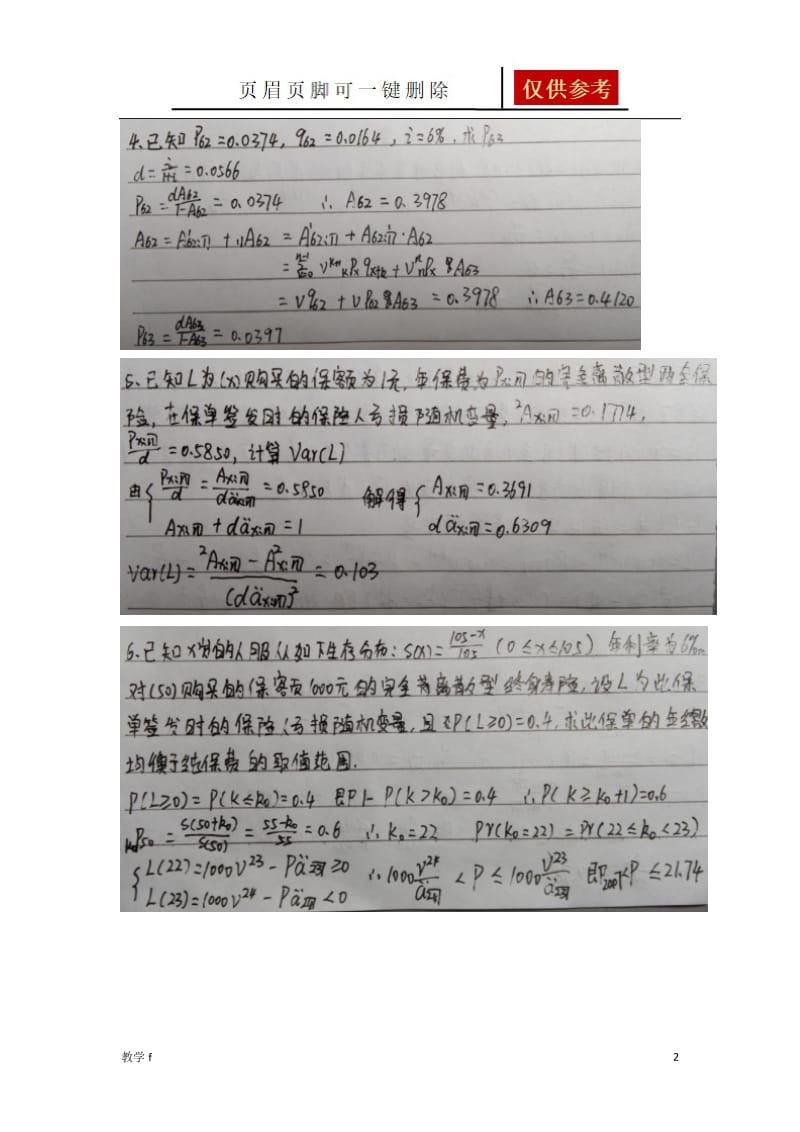 页眉页脚可一键删除
仅供参考
4.已知P₆₂=0.0374, q₆₂=0.0164, i=6%, 求P₆₃
d=i/(1+i)=0.0566
P₆₂=dA₆₂/(1-A₆₂)=0.0374 ∴A₆₂=0.3978
A₆₂=A¹₆₂:₁̅| + ₁|A₆₂ = A¹₆₂:₁̅| + A₆₂:₁̅|¹·A₆₂
=Σ vᵏ⁺¹ ₖPₓ qₓ₊ₖ + vⁿ ₙPₓ A₆₃
= v q₆₂ + v P₆₂ A₆₃ = 0.3978 ∴A₆₃=0.4120
P₆₃=dA₆₃/(1-A₆₃)=0.0397
5.已知L为(x)购买的保额为1元,年保费为Pₓ:ₙ̅|的完全离散型两全保
险,在保单签发时的保险人亏损随机变量, ²Aₓ:ₙ̅|=0.1774,
Pₓ:ₙ̅|/d=0.5850, 计算Var(L)
由{Pₓ:ₙ̅|/d=Aₓ:ₙ̅|/däₓ:ₙ̅|=0.5850 解得{Aₓ:ₙ̅|=0.3691
Aₓ:ₙ̅|+däₓ:ₙ̅|=1 däₓ:ₙ̅|=0.6309
Var(L)=(²Aₓ:ₙ̅|-A²ₓ:ₙ̅|)/(däₓ:ₙ̅|)²=0.103
6.已知x岁的人服从如下生存分布: S(x)=(105-x)/105 (0≤x≤105) 年利率为6%
对(50)购买的保额1000元的完全离散型终身寿险,设L为此保
单签发时的保险人亏损随机变量,且P(L≥0)=0.4,求此保单的年缴
均衡净纯保费的取值范围.
P(L≥0)=P(K≤k₀)=0.4 即1-P(K>k₀)=0.4 ∴P(K≥k₀+1)=0.6
ₖ₀P₅₀=S(50+k₀)/S(50)=(55-k₀)/55=0.6 ∴k₀=22 Pr(k₀=22)=Pr(22≤k₀<23)
{L(22)=1000v²³-Pä₂₃̅|≥0 ∴1000v²⁴/ä₂₄̅|<P≤1000v²³/ä₂₃̅| 即 <P≤21.74
L(23)=1000v²⁴-Pä₂₄̅|<0
教学f
2